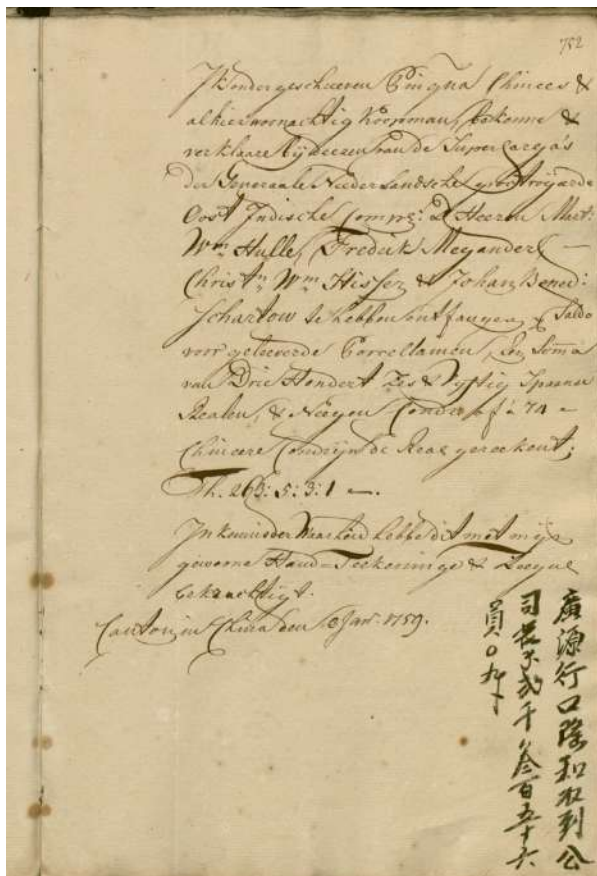 752
Ik ondergeschreeven Pinqua Chinees &
alhier woonachtig Koopman, bekenne &
verklaare bij deezen van de Super Carga's
der Generaale Neederlandsche geoctroijeerde
Oost Indische Compe: D' Heeren Mart:
Wm Hulle, Fredrik Meyander
Christn Wm Hisser & Johan Bened:
Schartow te hebben ontfangen Saldo
voor geleeverde Porcellainen, Een Somma
van Drie Hondert Zes & Vyftig Spaanse
Realen, & Neegen Condr of à 74
Chineese Condrijn de Reaal gereekent;
Th. 263:5:3:1
In kennisse der Waarheid hebbe dit met mijn
gewoone Hand-Teekeninge & Zeegul
bekrachtigt.
Canton in China den Jan: 1759.
廣源行口陳和收到公
司長艮弍千叁百五十六
員〇九卜